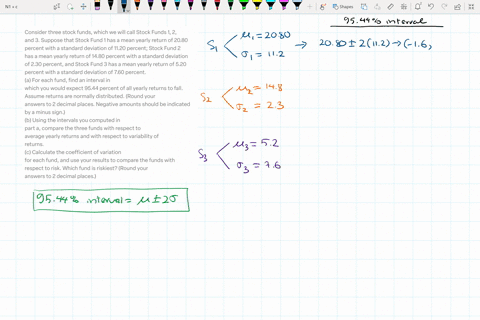 N1 v c
Shapes
Consider three stock funds, which we will call Stock Funds 1, 2,
and 3. Suppose that Stock Fund 1 has a mean yearly return of 20.80
percent with a standard deviation of 11.20 percent; Stock Fund 2
has a mean yearly return of 14.80 percent with a standard deviation
of 2.30 percent, and Stock Fund 3 has a mean yearly return of 5.20
percent with a standard deviation of 7.60 percent.
(a) For each fund, find an interval in
which you would expect 95.44 percent of all yearly returns to fall.
Assume returns are normally distributed. (Round your
answers to 2 decimal places. Negative amounts should be indicated
by a minus sign.)
(b) Using the intervals you computed in
part a, compare the three funds with respect to
average yearly returns and with respect to variability of
returns.
(c) Calculate the coefficient of variation
for each fund, and use your results to compare the funds with
respect to risk. Which fund is riskiest? (Round your
answers to 2 decimal places.)
95.44% interval = μ ± 2σ
95.44% interval
S₁ μ₁ = 20.80 → 20.80 ± 2(11.2) → (-1.6,
σ₁ = 11.2
S₂ μ₂ = 14.8
σ₂ = 2.3
S₃ μ₃ = 5.2
σ₃ = 7.6